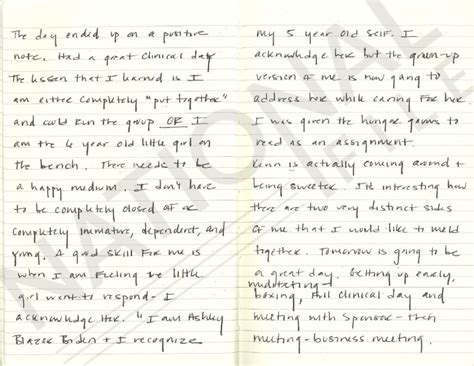 The day ended up on a positive
note. Had a great clinical day
The lesson that I learned is I
am either completely "put together"
and could run the group OR I
am the 6 year old little girl on
the bench. There needs to be
a happy medium. I don't have
to be completely closed off or
completely immature, dependent, and
young. A good skill for me is
when I am feeling the little
girl want to respond - I
acknowledge her. "I am Ashley
Biden + I recognize
my 5 year old self. I
acknowledge her but the grown-up
version of me is now going to
address her while caring for her
I was given the hunger games to
read as an assignment.
is actually coming around +
being sweeter. It interesting how
there are two very distinct sides
of me that I would like to meld
together. Tomorrow is going to be
a great day. Getting up early,
meditating -
boxing, full clinical day and
meeting with Sponsor - then
meeting - business meeting.
NATIONAL
FILE